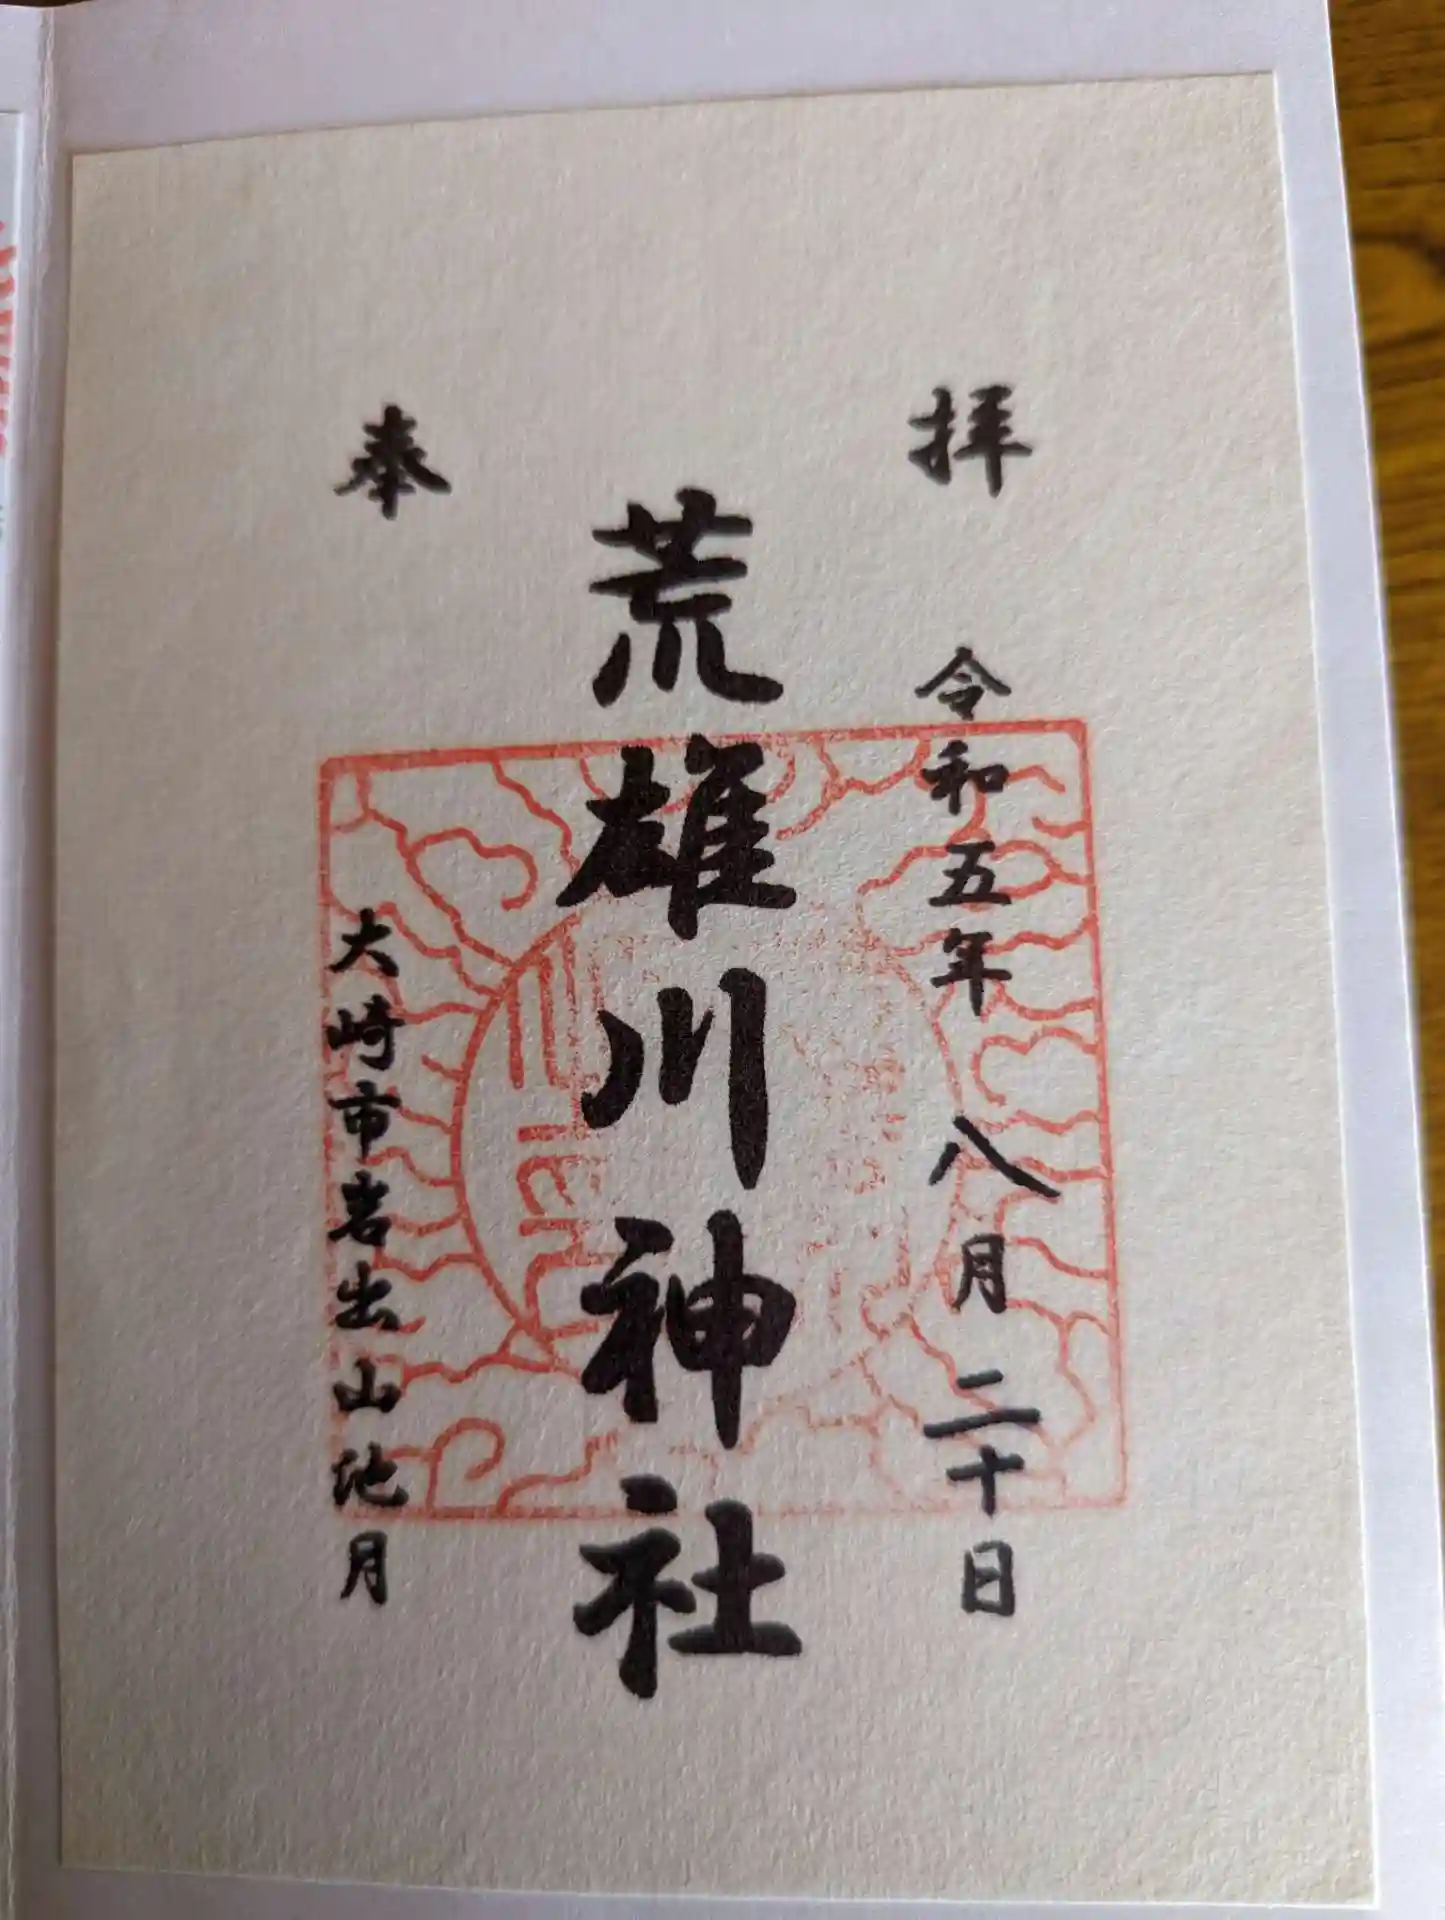 奉拝
令和五年 八月 二十日
荒雄川神社
大崎市岩出山池月